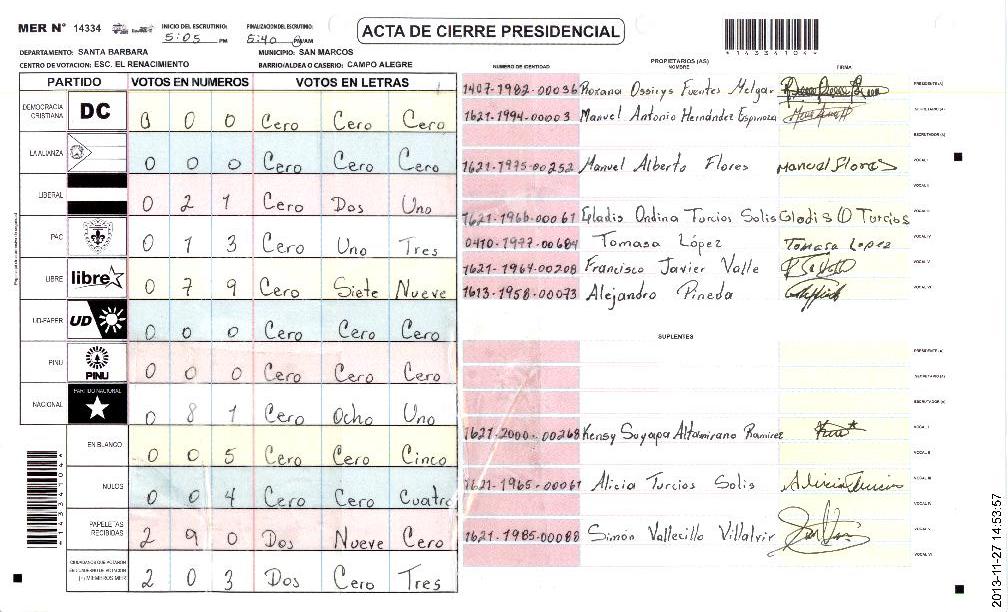 MER N° 14334 INICIO DEL ESCRUTINIO: 5:05 PM FINALIZACION DEL ESCRUTINIO: 6:40 PM/AM
ACTA DE CIERRE PRESIDENCIAL
*1433410*
DEPARTAMENTO: SANTA BARBARA MUNICIPIO: SAN MARCOS
CENTRO DE VOTACION: ESC. EL RENACIMIENTO BARRIO/ALDEA O CASERIO: CAMPO ALEGRE
PARTIDO VOTOS EN NUMEROS VOTOS EN LETRAS
DEMOCRACIA CRISTIANA DC 0 0 0 Cero Cero Cero
LA ALIANZA 0 0 0 Cero Cero Cero
LIBERAL 0 2 1 Cero Dos Uno
PAC 0 1 3 Cero Uno Tres
LIBRE libre 0 7 9 Cero Siete Nueve
UD-FAPER UD 0 0 0 Cero Cero Cero
PINU PINU 0 0 0 Cero Cero Cero
NACIONAL PARTIDO NACIONAL 0 8 1 Cero Ocho Uno
EN BLANCO 0 0 5 Cero Cero Cinco
NULOS 0 0 4 Cero Cero Cuatro
PAPELETAS RECIBIDAS 2 9 0 Dos Nueve Cero
CIUDADANOS QUE VOTARON EN CUADERNO DE VOTACION (+) MIEMBROS MER 2 0 3 Dos Cero Tres
PROPIETARIOS (AS)
NUMERO DE IDENTIDAD NOMBRE FIRMA
1407-1982-00036 Roxana Ossirys Fuentes Melgar PRESIDENTE (A)
1621-1994-00003 Manuel Antonio Hernández Espinoza SECRETARIO (A)
ESCRUTADOR (A)
1621-1975-00252 Manuel Alberto Flores Manuel Flores VOCAL I
VOCAL II
1621-1966-00061 Gladis Ondina Turcios Solis Gladis O Turcios VOCAL III
0410-1977-00684 Tomasa López Tomasa Lopez VOCAL IV
1621-1964-00208 Francisco Javier Valle VOCAL V
1613-1958-00073 Alejandro Pineda VOCAL VI
SUPLENTES
PRESIDENTE (A)
SECRETARIO (A)
ESCRUTADOR (A)
1621-2000-00268 Kensy Suyapa Altamirano Ramirez VOCAL I
VOCAL II
1621-1965-00061 Alicia Turcios Solis Alicia Turcios VOCAL III
VOCAL IV
1621-1985-00088 Simón Vallecillo Villalvir VOCAL V
VOCAL VI
2013-11-27 14:53:57